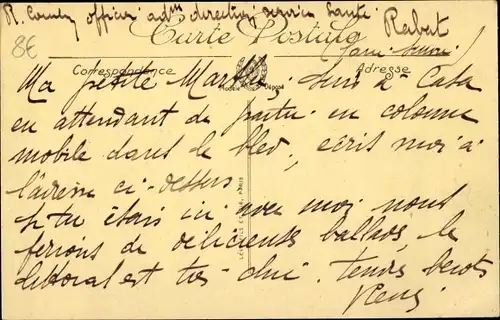 R. officier adm direction service Santé. Rabat
8€
Carte Postale
Correspondance Adresse
Modèle Déposé
Ma petite Marthe, suis à Casa
en attendant de partir en colonne
mobile dans le bled, écris moi à
l'adresse ci-dessus
si tu étais ici avec moi nous
ferions de délicieuses ballades, le
littoral est très chic. tendres bécots